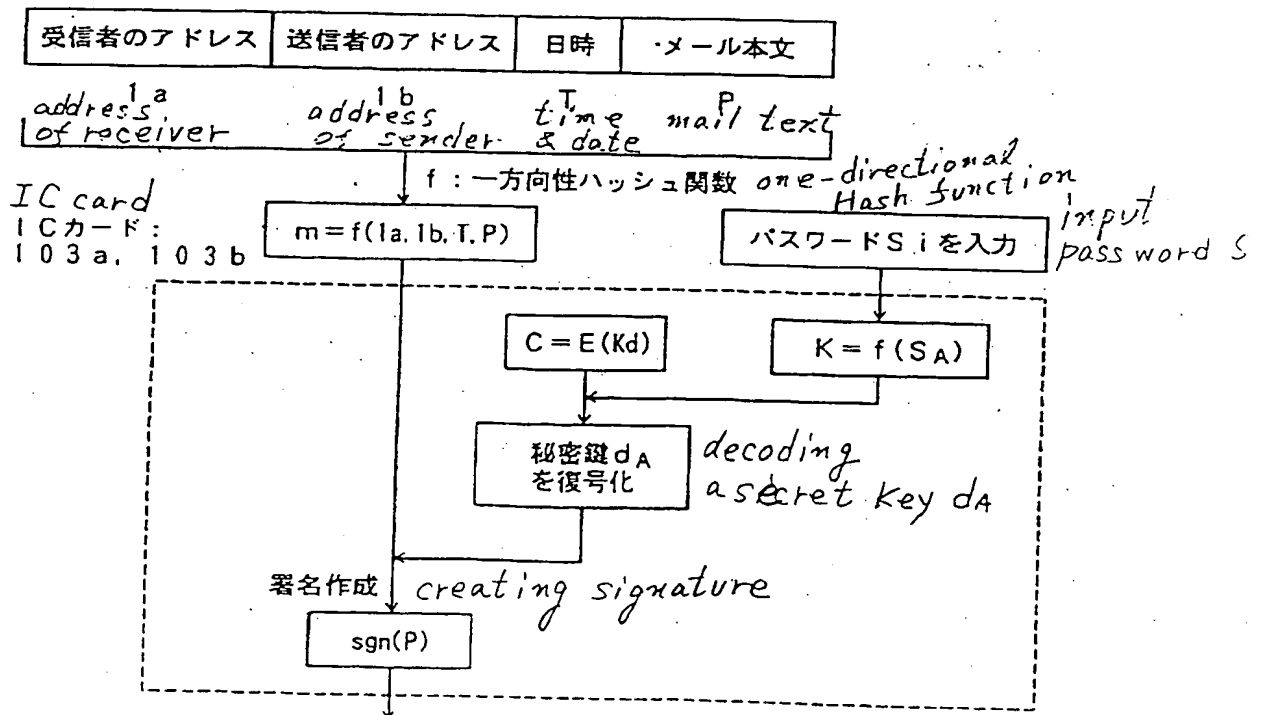 受信者のアドレス 送信者のアドレス 日時 ・メール本文
1a 1b T P
address address time mail text
of receiver of sender & date
f：一方向性ハッシュ関数 one-directional
Hash function
IC card
ICカード：
103a, 103b
m=f(1a.1b.T.P)
パスワードSiを入力
input
password S
C=E(Kd)
K=f(SA)
秘密鍵dA
を復号化
decoding
a secret key dA
署名作成 creating signature
sgn(P)